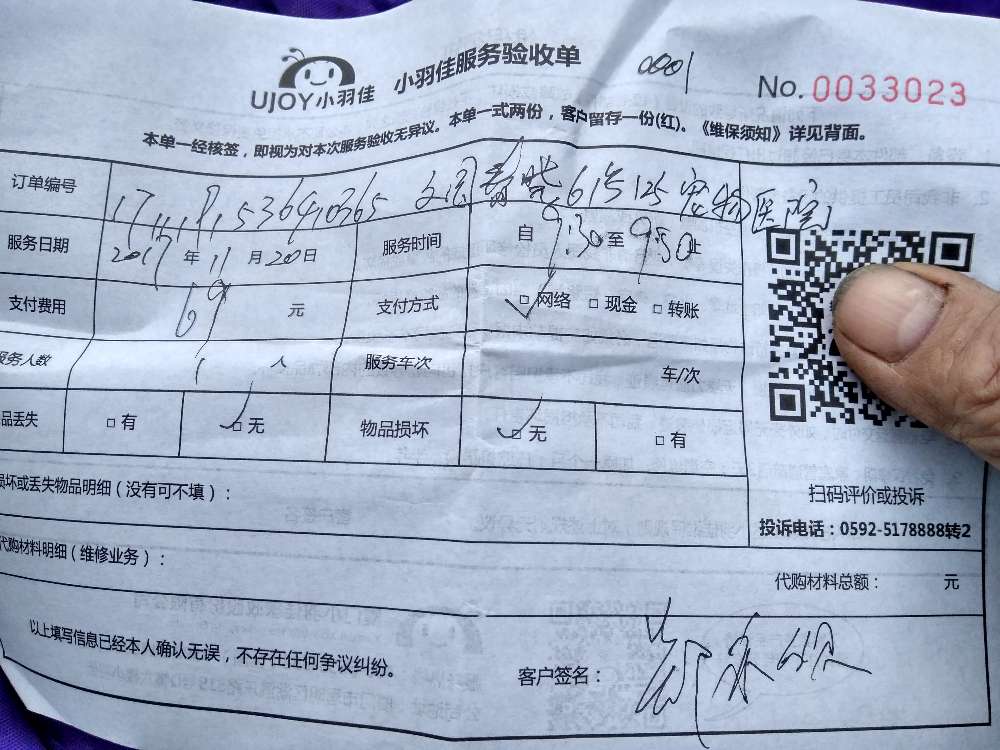 UJOY小羽佳 小羽佳服务验收单 0001 No.0033023
本单一经核签，即视为对本次服务验收无异议。本单一式两份，客户留存一份(红)。《维保须知》详见背面。
订单编号 61号125宠物医院
服务日期 2017年11月20日 服务时间 自8:30至9:50止
支付费用 69 元 支付方式 □网络 □现金 □转账
服务人数 1 人 服务车次 车/次
品丢失 □有 □无 物品损坏 □无 □有
损坏或丢失物品明细（没有可不填）：
扫码评价或投诉
投诉电话：0592-5178888转2
代购材料明细（维修业务）：
代购材料总额： 元
以上填写信息已经本人确认无误，不存在任何争议纠纷。
客户签名：